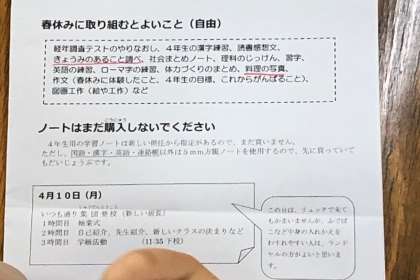 春休みに取り組むとよいこと（自由）
経年調査テストのやりなおし、４年生の漢字練習、読書感想文、
きょうみのあること調べ、社会まとめノート、理科のじっけん、習字、
英語の練習、ローマ字の練習、体力づくりのまとめ、料理の写真、
作文（春休みに体験したこと、４年生の目標、これからがんばること）、
図画工作（絵や工作）など
ノートはまだ購入しないでください
４年生用の学習ノートは新しい担任から指定があるので、まだ買いません。
ただし、国語・漢字・英語・連絡帳以外は５mm方眼ノートを使用するので、先に買っていて
もだいじょうぶです。
４月１０日（月）
いつも通り集団登校（新しい班長）
１時間目 始業式
２時間目 自己紹介、先生紹介、新しいクラスの決まりなど
３時間目 学級活動 （11:35 下校）
この日は、リュックで来て
もかまいませんが、ふでば
こなど中身の入れかえを
わすれやすい人は、ランド
セルの方がよいと思いま
す。